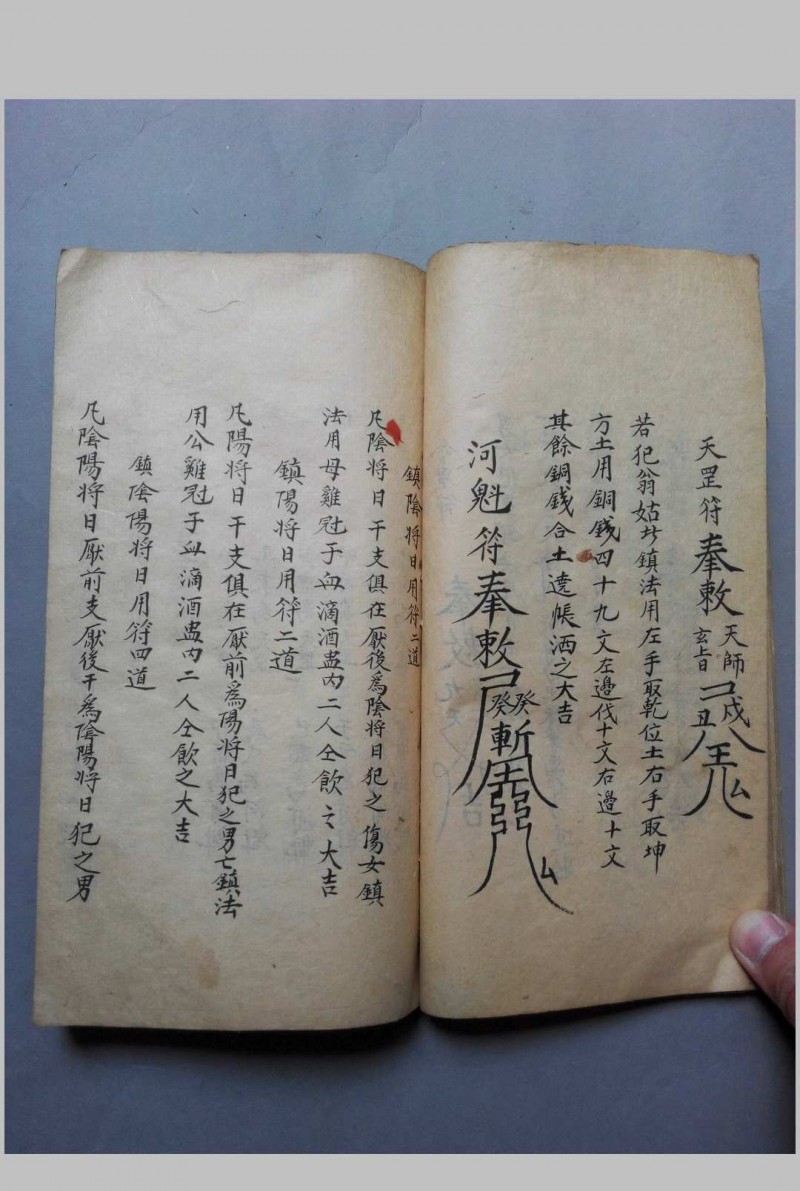 天罡符奉敕天師玄上日戌丑
若犯翁姑此鎮法用左手取乾位土右手取坤
方土用銅錢四十九文左邉伐十文右邉十文
其餘銅錢合土遶帳洒之大吉
河魁符奉敕癸癸斬
鎮陰將日用符二道
凡陰將日干支俱在厭後爲陰將日犯之傷女鎮
法用母雞冠子血滴酒盅內二人仝飲之大吉
鎮陽將日用符二道
凡陽將日干支俱在厭前爲陽將日犯之男亡鎮法
用公雞冠子血滴酒盅內二人仝飲之大吉
鎮陰陽將日用符四道
凡陰陽將日厭前支厭後干爲陰陽將日犯之男